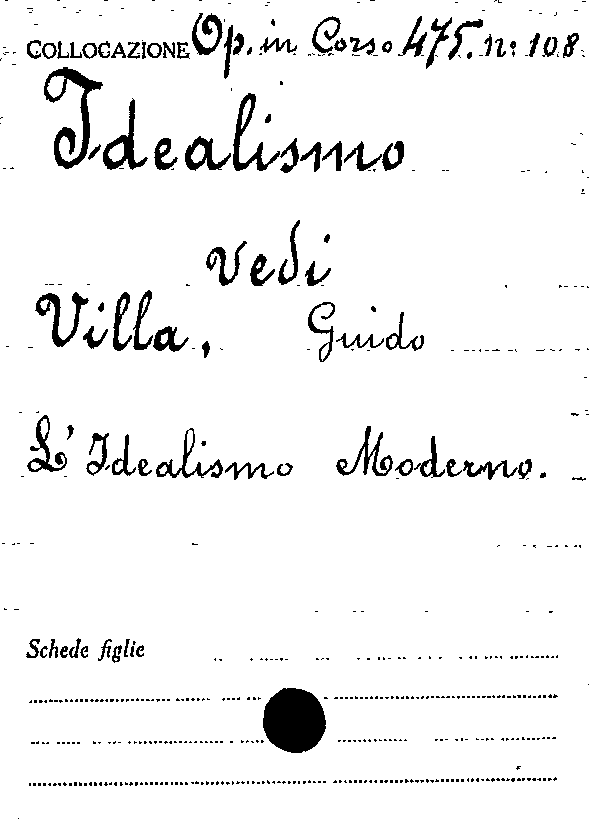 COLLOCAZIONE Op. in Corso 475. n: 108.
Idealismo
vedi
Villa, Guido
L'Idealismo Moderno.
Schede figlie